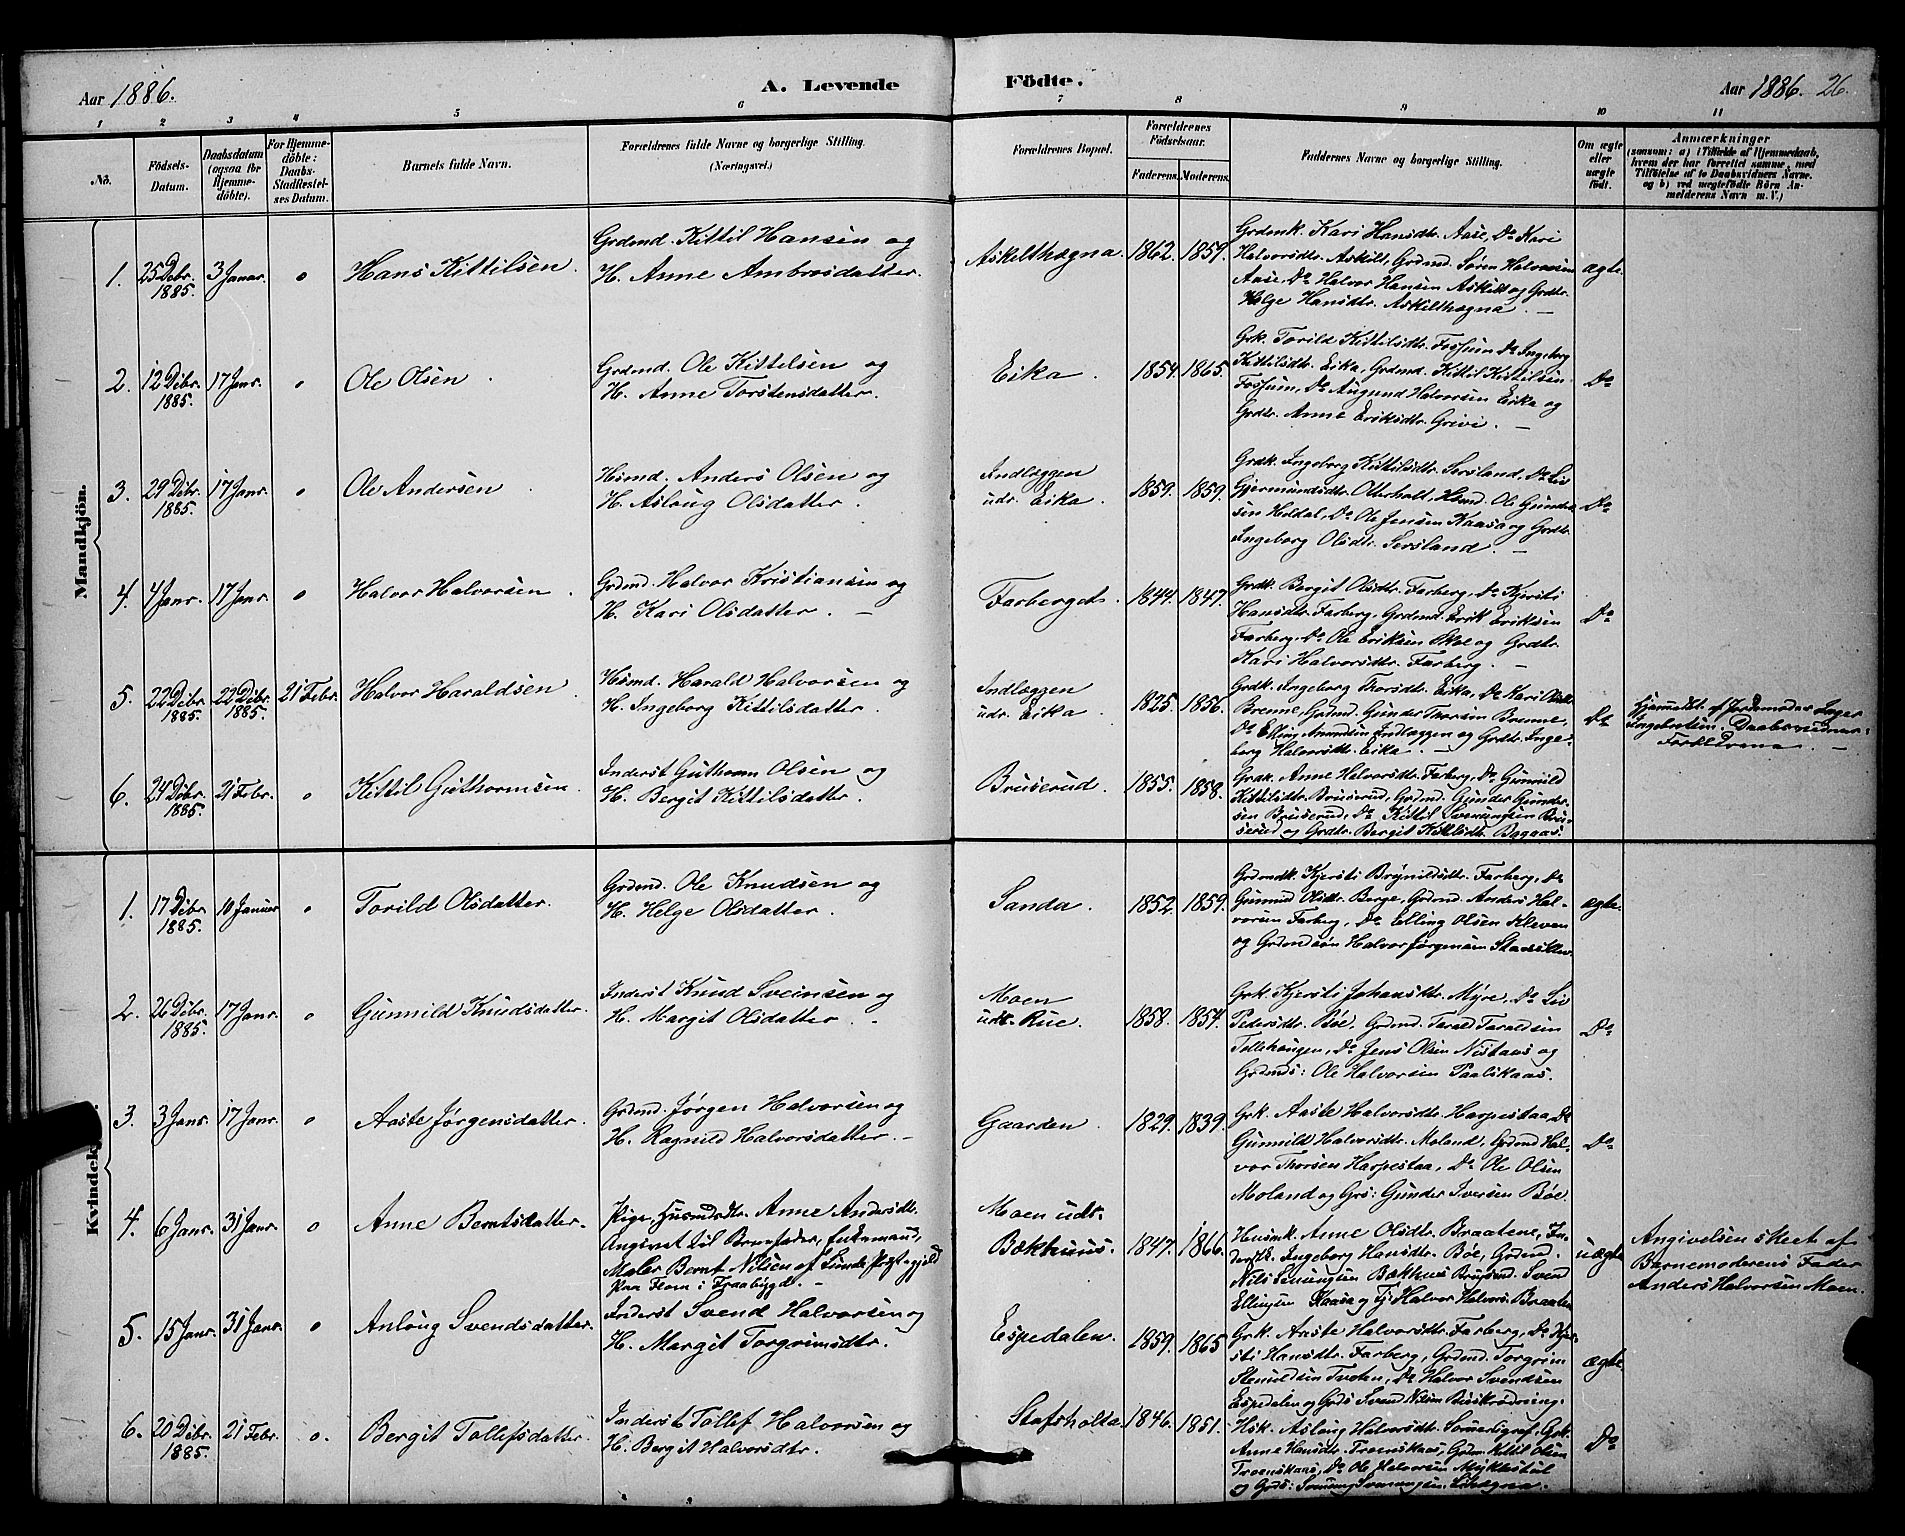 Aar 1886.
A. Levende
Födte.
Aar 1886. 26.
1 2 3 4 5 6 7 8 9 10 11
No.
Födsels-
Datum.
Daabsdatum
(ogsaa for
Hjemme-
döbte).
For Hjemme-
döbte:
Daabs-
Stadfæstel-
ses Datum.
Barnets fulde Navn.
Forældrenes fulde Navne og borgerlige Stilling.
(Næringsvei.)
Forældrenes Bopæl.
Forældrenes
Födselsaar.
Faderens. Moderens.
Faddernes Navne og borgerlige Stilling.
Om ægte
eller
uægte
födt.
Anmærkninger
(saasom: a) i Tilfælde af Hjemmedaab,
hvem der har forrettet samme, med
Tilföielse af to Daabsvidners Navne.
og b) ved uægtefödte Börn An-
melderens Navn m. V.)
Mandkjön.
1. 25 Debr. 1885. 3 Januar. o Hans Kittilsen.
Grdmd. Kittil Hansen og
H. Anne Ambrosdatter.
Askelthægna 1862. 1859.
Grdmk. Kari Hansdtr. Aase, Do Kari
Halvorsdtr. Askilt, Grdmd. Søren Halvorsen
Aase, Do Halvor Hansen Askilt og Grdtr.
Helge Hansdtr. Askilthægna. —
ægte.
2. 12 Debr. 1885. 17 Janr. o Ole Olsen.
Grdmd. Ole Kittelsen og
H. Anne Torstensdatter.
Eika. 1854. 1865.
Grk. Torild Kittilsdtr. Fossum, Do Ingeborg
Kittilsdtr. Eika, Grdmd. Kittil Kittilsen
Fossum, Do Augund Halvorsen Eika og
Grdtr. Anne Eriksdtr. Grivi. —
Do
3. 29 Debr. 1885. 17 Janr. o Ole Andersen.
Hsmd. Anders Olsen og
H. Aslaug Olsdatter.
Indlæggen
udr. Eika. 1859. 1859.
Grdk. Ingeborg Kittilsdtr. Sersland, Do Lis
Gjermundsdtr. Otterholt, Hsmd. Ole Gunder-
sen Heldal, Do Ole Jensen Kaasa og Grdtr.
Ingeborg Olsdtr. Sersland. —
Do
4. 4 Janr. 17 Janr. o Halvor Halvorsen.
Grdmd. Halvor Kristiansen og
H. Kari Olsdatter. —
Farberget. 1844. 1847.
Grdk. Bergit Olsdtr. Farberg, Do Kjersti
Hansdtr. Farberg, Grdmd. Erik Eriksen
Farberg, Do Ole Eriksen Skoe og Grdtr.
Kari Halvorsdtr. Farberg. —
Do
5. 22 Debr. 1885. 22 Debr. 1885. 21 Febr. Halvor Haraldsen.
Hsmd. Harald Halvorsen og
H. Ingeborg Kittilsdatter.
Indlæggen
udr. Eika. 1825. 1856.
Grdk. Ingeborg Thorsdtr. Eika, Do Kari
Brenne, Grdmd. Gunder Thorsen Brenne,
Do Elling Amundsen Indlæggen og Grdtr. Inge-
borg Halvorsdtr. Eika. —
Do
Hjemmedt. af Jordemoder Inger
Ingebretsen. Daabsvidner:
Forældrene. —
6. 24 Debr. 1885. 21 Febr. o Kittil Guthormsen.
Inderst Guthorm Olsen og
H. Bergit Kittilsdatter.
Bruserud. 1855. 1858.
Grdk. Anne Halvorsdtr. Farberg, Do Gunnild
Kittilsdtr. Bruserud, Grdmd. Gunder Gunder-
sen Bruserud, Do Kittil Sveinungsen Bru-
serud og Grdtr. Bergit Kittilsdtr. Bagaas.
Kvindek
1. 17 Debr. 1885. 10 Januar o Torild Olsdatter.
Grdmd. Ole Knudsen og
H. Helge Olsdatter.
Sanda. 1852. 1859.
Grdmdk. Kjersti Brynildsdtr. Farberg, Do
Gunnild Olsdtr. Berge, Grdmd. Anders Hal-
vorsen Farberg, Do Elling Olsen Kleven
og Grdmdsøn Halvor Jørgensen
ægte.
2. 26 Debr. 1885. 17 Janr. o Gunnild Knudsdatter.
Inderst Knud Sveinsen og
H. Margit Olsdatter.
Moen
udr. Rue. 1858. 1854.
Grk. Kjersti Johansdtr. Myre, Do Lis
Pedersdtr. Bøe, Grdmd. Tarald Taraldsen
Tollehaugen, Do Jens Olsen Nistaas og
Grdmds: Ole Halvorsen Paalskaas.
Do
3. 3 Janr. 17 Janr. o Aaste Jørgensdatter.
Grdmd. Jørgen Halvorsen og
H. Ragnild Halvorsdatter. —
Gaarden. 1829. 1839.
Grk. Aaste Halvorsdtr. Harpestaa, Do
Gunnild Halvorsdtr. Moland, Grdmd Hal-
vor Thorsen Harpestaa, Do Ole Olsen
Moland og Grs: Gunder Iversen Bøe.
Do
4. 6 Janr. 31 Janr. o Anne Berntsdatter.
Pige, Husmdsdtr. Anne Andersdtr.
Angivet til Barnefader, Enkemand,
Maler Bernt Nilsen af Lunde Præstegjeld
paa Flom i Fraabygde. —
Moen udr.
Bækhuus. 1847. 1866.
Husmk. Anne Olsdtr. Braatene, In-
derstk. Ingeborg Hansdtr. Bøe, Grdmd.
Nils Bækhus Svend
Ellingsen Kaasa og Halvor Halvors. Braaten
uægte
Angivelsen skeet af
Barnemoderens Fader
Anders Halvorsen Moen.
5. 15 Janr. 31 Janr. o Anlaug Svendsdatter.
Inderst Svend Halvorsen og
H. Margit Torgrimsdtr.
Espedalen. 1859. 1865
Grk. Aaste Halvorsdtr. Farberg, Do Kjer-
sti Hansdtr. Farberg, Grdmd. Torgrim
Stenulsen Tveten, Do Halvor Svendsen
Espedalen og Grds Svend Nilsen
ægte
6. 20 Debr. 1885. 21 Febr. o. Bergit Tollefsdatter.
Inderst Tollef Halvorsen og
H. Bergit Halvorsdtr.
Stafsholta 1846. 1851.
Hsk. Aslaug Halvorsdtr. Grk.
Anne Hansdtr. Grdm. Kittil Olsen
Do Ole Halvorsen Myklestul
og Grds:
Do